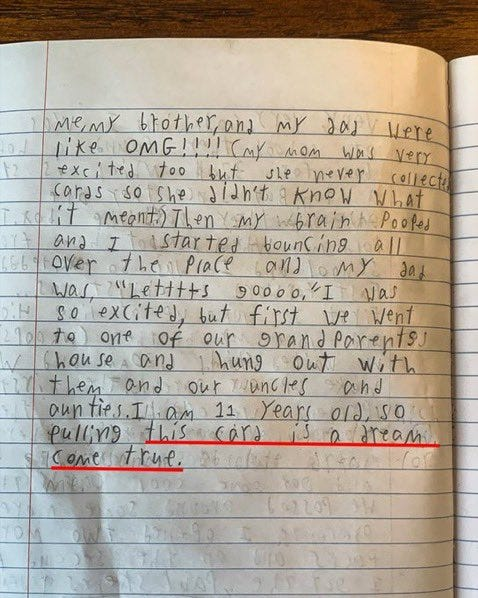 me, my brother, and my dad were
like OMG!!!!! (my mom was very
excited too but she never collected
cards so she didn't know what
it meant.) Then my brain Pooped
and I started bouncing all
over the place and my dad
was, "Letttts goooo." I was
so excited, but first we went
to one of our grandparents
house and hung out with
them and our uncles and
aunties. I am 11 years old, so
pulling this card is a dream
come true.